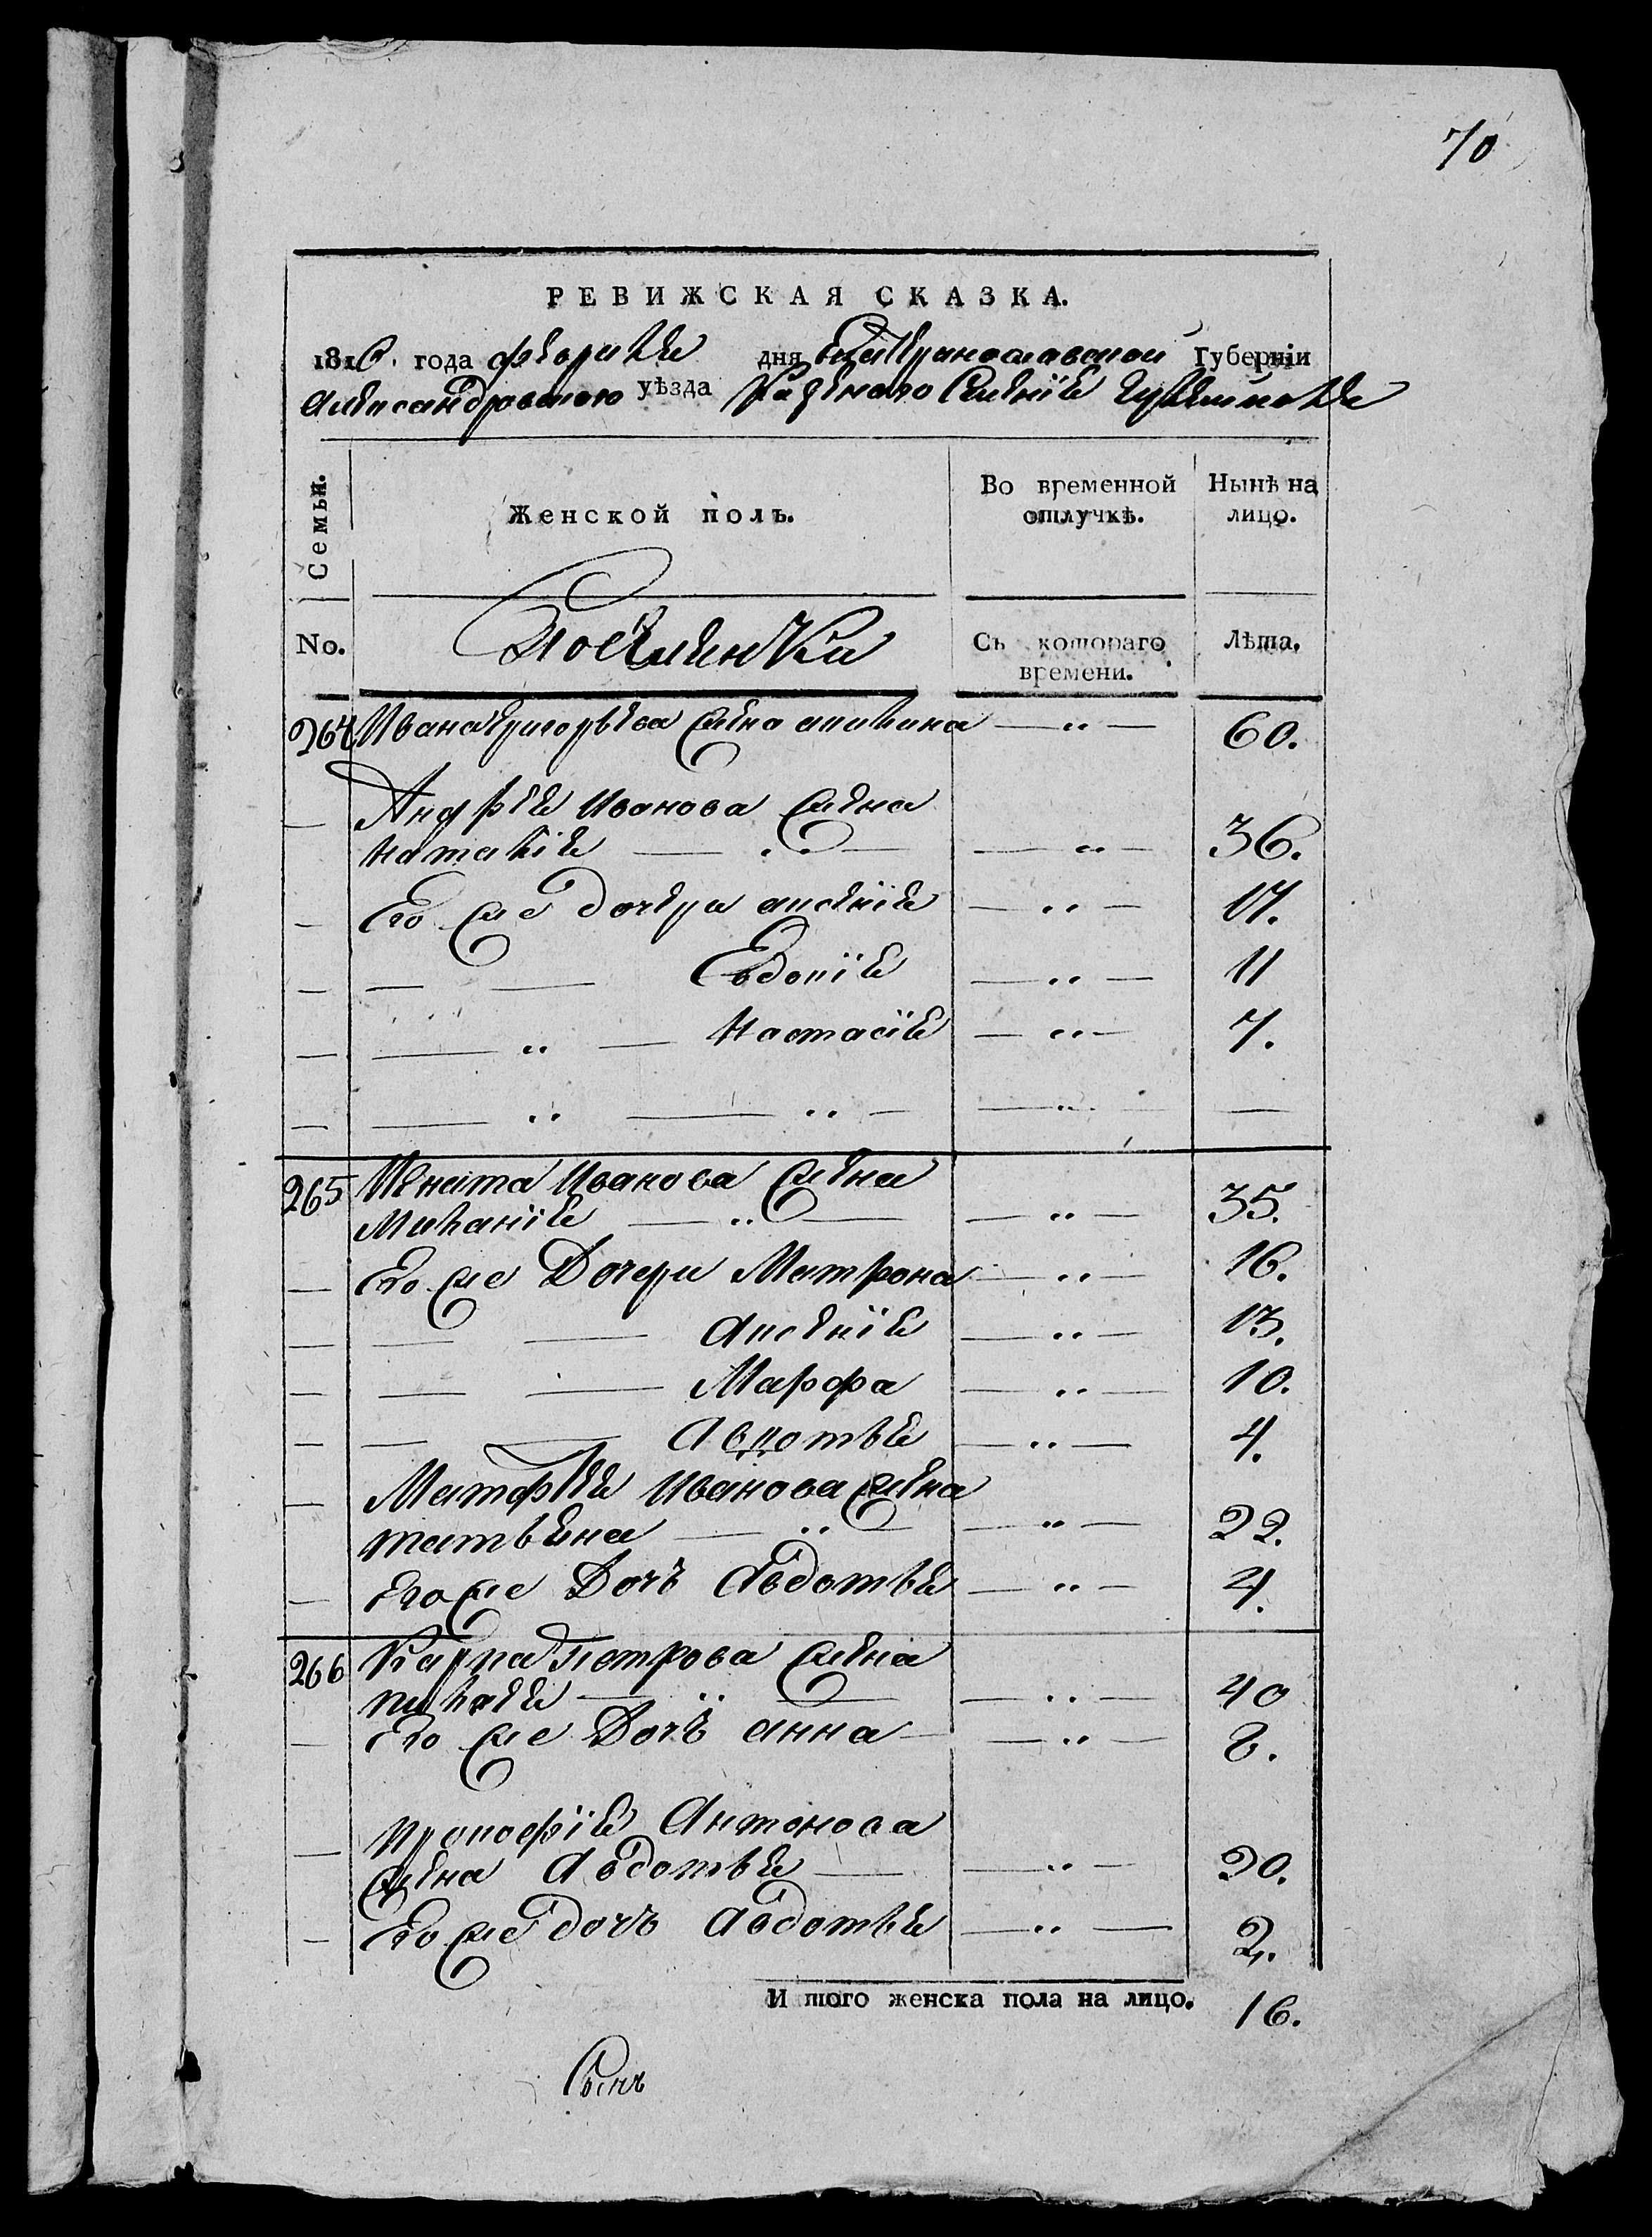 70
РЕВИЖСКАЯ СКАЗКА.
1816. года февраля дня Екатеринославской Губерніи
Александровского уѣзда Казенного Селенія
Семьи.
Женской полъ.
Во временной отлучкѣ.
Нынѣ на лицо.
No.
Поселянки
Съ котораго времени.
Лѣта.
264 Ивана Григорьева жена акилина — " — 60.
— Андрея Иванова жена
наталія — " — — " — 36.
— Его же дочери аксенія — " — 17.
— — — Евдокія — " — 11
— — " — Настасія — " — 7.
— — " — " — — " — —
265 Игната Иванова жена
Миланія — " — — " — 35.
— Его же Дочери Матрона — " — 16.
— — — Аксенія — " — 13.
— — — Марфа — " — 10.
— — — Авдотья — " — 4.
— Матфея Иванова жена
татьяна — " — — " — 22.
— его же Дочь Авдотья — " — 4.
266 Карпа Петрова жена
— " — — " — 40
— Его же Дочь анна — — " — 8.
— Прокофія Антонова
жена Авдотья — — " — 20.
— Его же дочь Авдотья — " — 2.
И того женска пола на лицо. 16.
Сынъ